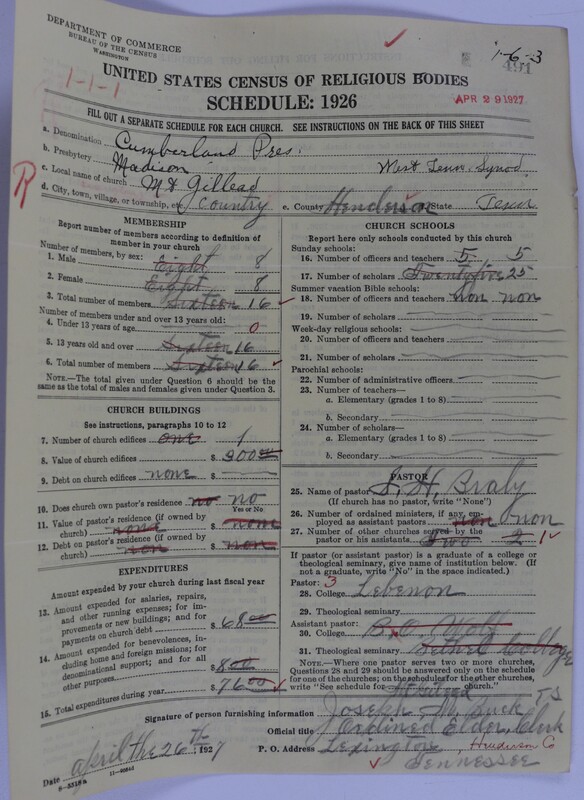 DEPARTMENT OF COMMERCE
BUREAU OF THE CENSUS
WASHINGTON
1-6-3
491
1-1-1
UNITED STATES CENSUS OF RELIGIOUS BODIES
SCHEDULE: 1926
APR 29 1927
FILL OUT A SEPARATE SCHEDULE FOR EACH CHURCH. SEE INSTRUCTIONS ON THE BACK OF THIS SHEET
a. Denomination Cumberland Pres.
b. Presbytery Madison West Tenn. Synod
c. Local name of church Mt Gillead
R
d. City, town, village, or township, etc. Country e. County Henderson State Tenn
MEMBERSHIP
Report number of members according to definition of member in your church
Number of members, by sex:
1. Male Eight 8
2. Female Eight 8
3. Total number of members Sixteen 16
Number of members under and over 13 years old:
4. Under 13 years of age 0
5. 13 years old and over Sixteen 16
6. Total number of members Sixteen 16
NOTE.—The total given under Question 6 should be the same as the total of males and females given under Question 3.
CHURCH BUILDINGS
See instructions, paragraphs 10 to 12
7. Number of church edifices one 1
8. Value of church edifices $ 300 00
9. Debt on church edifices none $
10. Does church own pastor's residence no no
Yes or No
11. Value of pastor's residence (if owned by church) none $ none
12. Debt on pastor's residence (if owned by church) non $ non
EXPENDITURES
Amount expended by your church during last fiscal year
13. Amount expended for salaries, repairs, and other running expenses; for improvements or new buildings; and for payments on church debt $ 68 00
14. Amount expended for benevolences, including home and foreign missions; for denominational support; and for all other purposes $ 8 00
15. Total expenditures during year $ 76 00
CHURCH SCHOOLS
Report here only schools conducted by this church
Sunday schools:
16. Number of officers and teachers 5 5
17. Number of scholars Twentyfive 25
Summer vacation Bible schools:
18. Number of officers and teachers non non
19. Number of scholars
Week-day religious schools:
20. Number of officers and teachers
21. Number of scholars
Parochial schools:
22. Number of administrative officers
23. Number of teachers—
a. Elementary (grades 1 to 8)
b. Secondary
24. Number of scholars—
a. Elementary (grades 1 to 8)
b. Secondary
PASTOR
25. Name of pastor J. H. Braly
(If church has no pastor, write "None")
26. Number of ordained ministers, if any, employed as assistant pastors non non
27. Number of other churches served by the pastor or his assistants Two 2 1
If pastor (or assistant pastor) is a graduate of a college or theological seminary, give name of institution below. (If not a graduate, write "No" in the space indicated.)
Pastor: 3
28. College Lebenon
29. Theological seminary
Assistant pastor:
30. College
31. Theological seminary Bethel Collage
NOTE.—Where one pastor serves two or more churches, Questions 28 and 29 should be answered only on the schedule for one of the churches; on the schedules for the other churches, write "See schedule for church."
Signature of person furnishing information Joseph M.
Official title Ordined Elder, Clerk
P. O. Address Lexington, Henderson Co
Tennessee
Date april the 26th, 1927
8-5318a